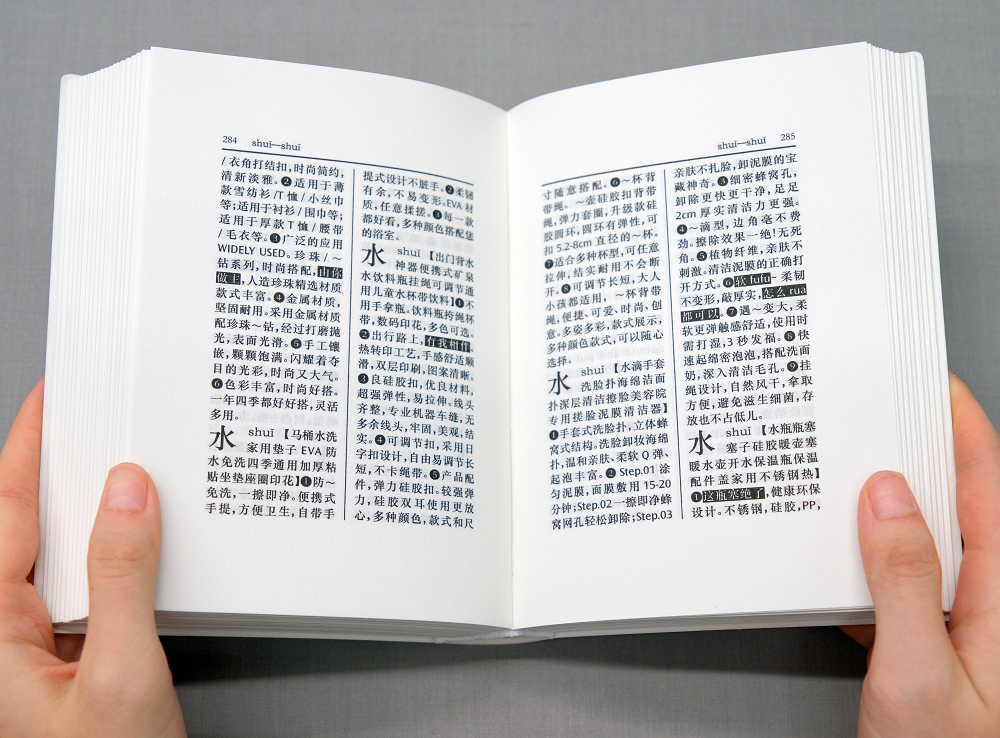 284 shuǐ—shuǐ
/衣角打结扣,时尚简约,
清新淡雅。❷适用于薄
款雪纺衫/T恤/小丝巾
等;适用于衬衫/围巾等;
适用于厚款T恤/腰带
/毛衣等。❸广泛的应用
WIDELY USED。珍珠/～
钻系列,时尚搭配,由你
做主,人造珍珠精选材质
款式丰富。❹金属材质,
坚固耐用。采用金属材质
配珍珠～钻,经过打磨抛
光,表面光滑。❺手工镶
嵌,颗颗饱满。闪耀着夺
目的光彩,时尚又大气。
❻色彩丰富,时尚好搭。
一年四季都好好搭,灵活
多用。
水 shuǐ【马桶水洗
家用垫子EVA防
水免洗四季通用加厚粘
贴坐垫座圈印花】❶防～
免洗,一擦即净。便携式
手提,方便卫生,自带手
提式设计不脏手。❷柔韧
有余,不易变形。EVA材
质,任意揉搓。❸每一款
都好看,多种颜色搭配您
的浴室。
水 shuǐ【出门背水
神器便携式矿泉
水饮料瓶挂绳可调节通
用儿童水杯带饮料】❶不
用手拿瓶。饮料瓶挎绳杯
带,数码印花,多色可选。
❷出行路上,有我相伴。
热转印工艺,手感舒适顺
滑,双层印刷,图案清晰。
❸良硅胶扣,优良材料,
超强弹性,易拉伸。线头
齐整,专业机器车缝,无
多余线头,牢固,美观,结
实。❹可调节扣,采用日
字扣设计,自由易调节长
短,不卡绳带。❺产品配
件,弹力硅胶扣。较强弹
力,硅胶双耳使用更放
心,多种颜色,款式和尺
shuǐ—shuǐ 285
寸随意搭配。❻～杯背
带绳。～壶硅胶扣背带
绳,弹力套圈,升级款硅
胶圆环,圆环有弹性,可
扣5.2-8cm直径的～杯。
❼适合多种杯型,可任意
拉伸,结实耐用不会断
开。❽可调节长短,大人
小孩都适用,～杯背带
绳,便捷、可爱、时尚、创
意。多姿多彩,款式展示,
多种颜色款式,可以随心
选择。
水 shuǐ【水滴手套
洗脸扑海绵洁面
扑深层清洁擦脸美容院
专用搓脸泥膜清洁器】
❶手套式洗脸扑,立体蜂
窝式结构。洗脸卸妆海绵
扑,温和亲肤、柔软Q弹、
起泡丰富。❷Step.01涂
匀泥膜,面膜敷用15-20
分钟;Step.02一擦即净蜂
窝网孔轻松卸除;Step.03
亲肤不扎脸,卸泥膜的宝
藏神奇。❸细密蜂窝孔,
卸除更快更干净,足足
2cm厚实清洁力更强。
❹～滴型,边角毫不费
劲。擦除效果一绝!无死
角。❺植物纤维,亲肤不
刺激。清洁泥膜的正确打
开方式。❻软fufu～柔韧
不变形,敲厚实,怎么rua
都可以。❼遇～变大,柔
软更弹触感舒适,使用时
需打湿,3秒发福。❽快
速起绵密泡泡,搭配洗面
奶,深入清洁毛孔。❾挂
绳设计,自然风干,拿取
方便,避免滋生细菌,存
放也不占低儿。
水 shuǐ【水瓶瓶塞
塞子硅胶暖壶塞
暖水壶开水保温瓶保温
配件盖家用不锈钢热】
❶这瓶塞绝了,健康环保
设计。不锈钢,硅胶,PP,